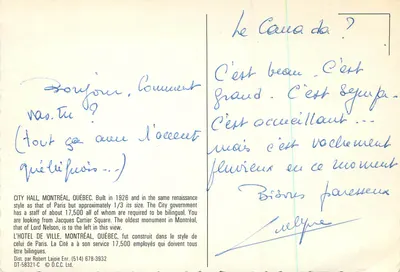 Bonjour, Comment
vas-tu ?
(tout ça avec l'accent
québécois...)
CITY HALL, MONTRÉAL, QUÉBEC. Built in 1926 and in the same renaissance
style as that of Paris but approximately 1/3 its size. The City government
has a staff of about 17,500 all of whom are required to be bilingual. You
are looking from Jacques Cartier Square. The oldest monument in Montréal,
that of Lord Nelson, is to the left in this view.
L'HÔTEL DE VILLE, MONTRÉAL, QUÉBEC, fut construit dans le style de
celui de Paris. La Cité a à son service 17,500 employés qui doivent tous
être bilingues.
Dist. par Robert Lajoie Enr. (514) 678-3932
DT-58321-C © D.C.C. Ltd.
Le Canada ?
C'est beau. C'est
grand. C'est sympa.
C'est accueillant...
mais c'est vachement
pluvieux en ce moment
Bisous